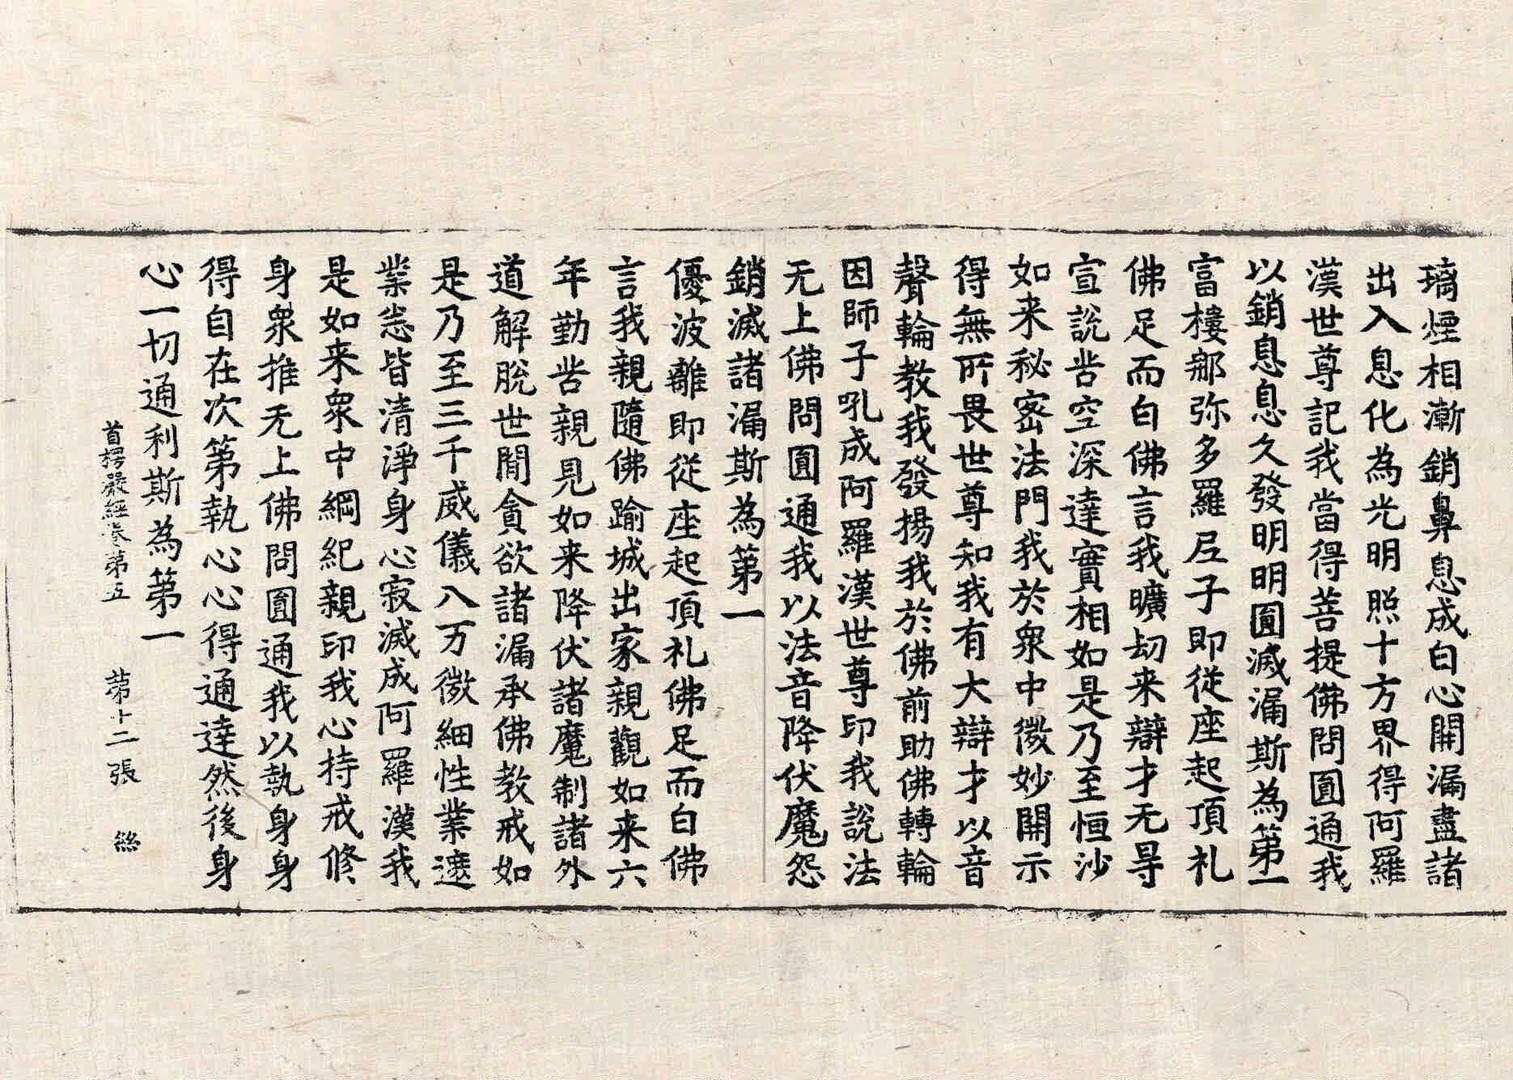 璃煙相漸銷鼻息成白心開漏盡諸
出入息化為光明照十方界得阿羅
漢世尊記我當得菩提佛問圓通我
以銷息息久發明明圓滅漏斯為第一
富樓那弥多羅尼子即從座起頂礼
佛足而白佛言我曠劫来辯才无㝵
宣說苦空深達實相如是乃至恒沙
如来秘密法門我於衆中微妙開示
得無所畏世尊知我有大辯才以音
聲輪教我發揚我於佛前助佛轉輪
因師子吼成阿羅漢世尊印我說法
无上佛問圓通我以法音降伏魔怨
銷滅諸漏斯為第一
優波離即從座起頂礼佛足而白佛
言我親隨佛踰城出家親觀如来六
年勤苦親見如来降伏諸魔制諸外
道解脫世間貪欲諸漏承佛教戒如
是乃至三千威儀八万微細性業遮
業悉皆清淨身心寂滅成阿羅漢我
是如来衆中綱紀親印我心持戒修
身衆推无上佛問圓通我以執身身
得自在次第執心心得通達然後身
心一切通利斯為第一
首楞嚴經卷第五 第十二張 終